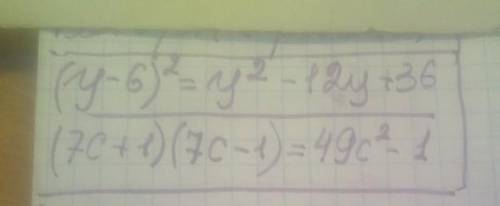 (y-6)² = y² - 12y + 36
(7c+1)(7c-1) = 49c² - 1